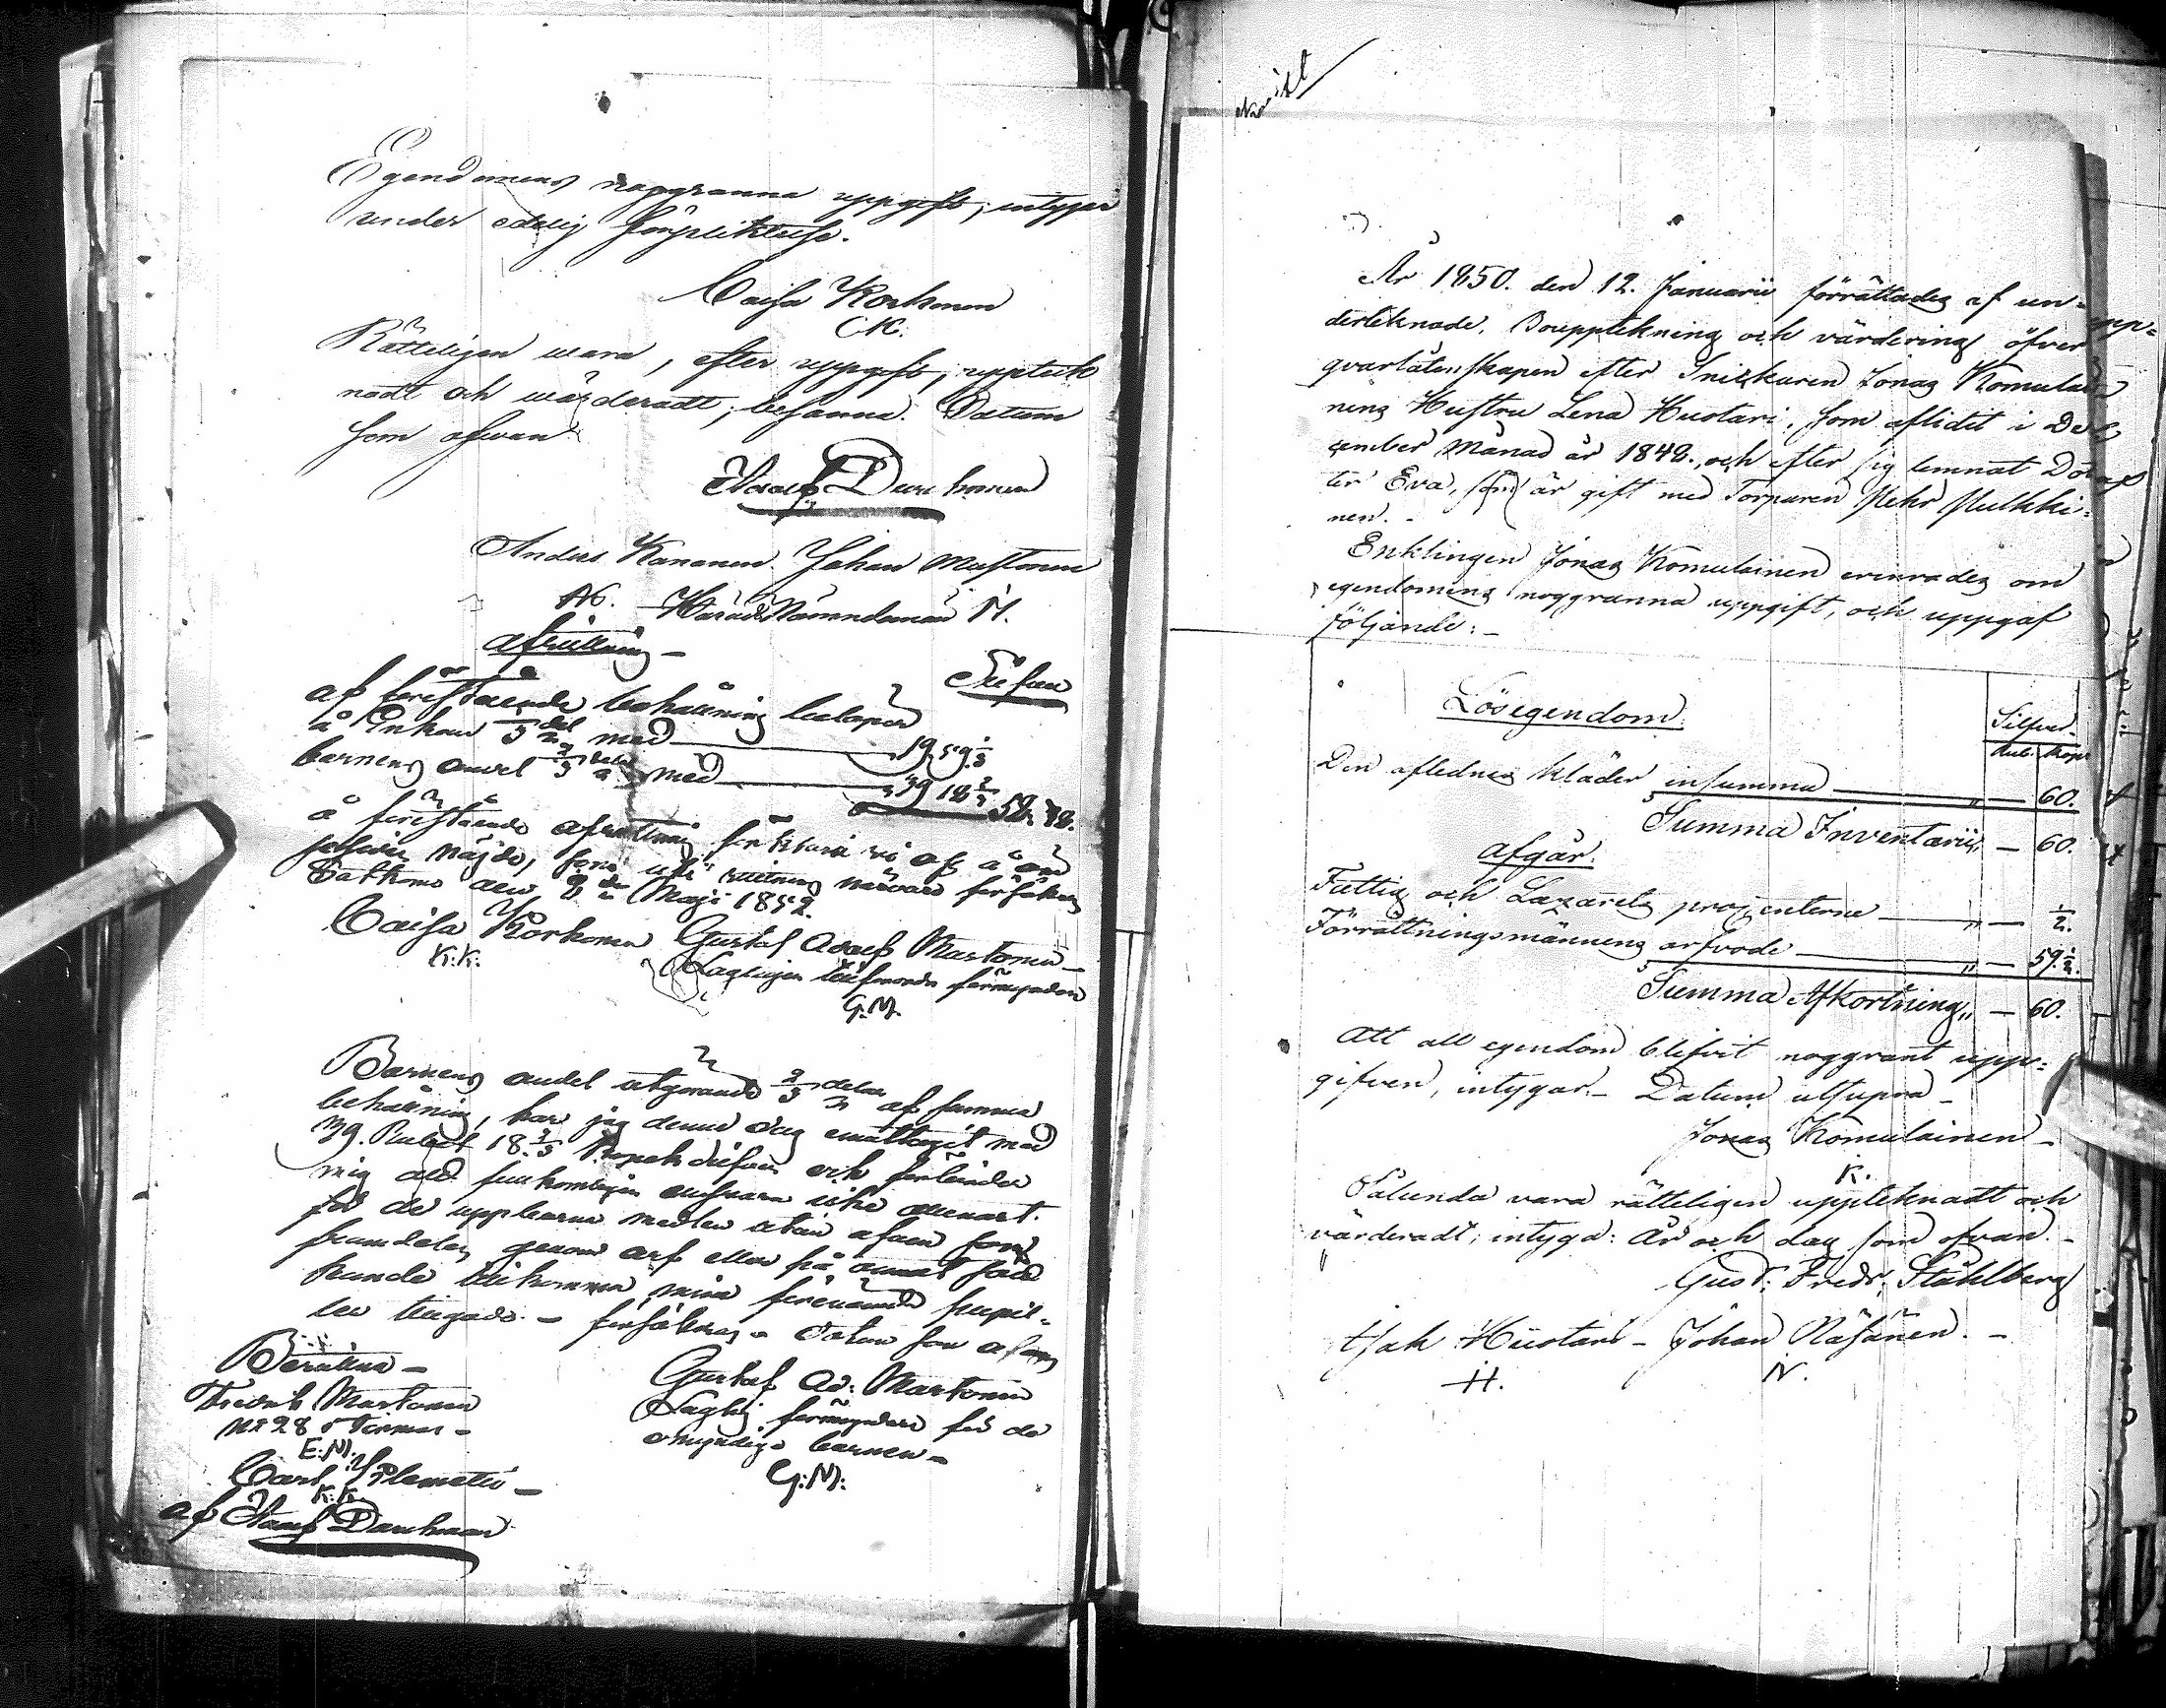 Egendomens noggranna uppgift, intygar
under edelig förpliktelse.
Caisa Korhonen
K.
Rätteligen vara, efter uppgift, uppteck
nadt och wärderadt, besanna. Datum
som ofvan
Anders Kananen Johan Mustonen
Härads Nämndeman M.
Afvittring
Silfver
af förestående behållning belöper
å Enkan 1/3 del med 19 59 1/3
barnens andel 2/3 delar med 39 18 2/3 58. 78.
å förestående afvittring förklara vi oss å ömse
sidor nöjde, som uti vittnens närvaro försäkras
Sotkamo den 8 den Maji 1852.
Caisa Korhonen Gustaf Adolf Mastonen
K.K. Lagligen tillförordn förmyndare
G.M.
Barnens andel utgörande 2/3 delar af samma
behållning, har jag denna dag emottagit med
39. Rubel 18 2/3 Kopek silfver och förbinder
mig att fullkomligen ansvara icke allenast
för de uppburna medlen utan äfven som
framdeles genom arf eller på annat sätt
kunde tillkomma mina förenämnde pupil-
ler tilegade - försäkras - Datum som ofvan
Bevittna
Gustaf Ad: Mastonen
Fredrik Mastonen
Laglig förmyndare för de
No 28
omyndige barnen
E.M.
G:M:
Carl
K.K.
af
År 1850. den 12. Januarii förrättades af un-
derteknade, Bouppteckning och värdering öfver
qvarlåtenskapen efter Snickaren Jonas Komulai
nens Hustru Lena Huotari, som aflidit i De
cember Månad år 1849., och efter sig lemnat Dot
ter Eva, som är gift med Torparen Pehr Pulkki-
nen. -
Enklingen Jonas Komulainen erinrades om
egendomens noggranna uppgift, och uppgaf
följande: -
Lösegendom.
Silfver
Rub. Kop.
Den aflednes kläder insumma „ — 60.
Summa Inventarii „ — 60.
Afgår.
Fattig och Lazarets procenterne „ — 1/2.
Förrättningsmännens arfvode „ — 59 1/2.
Summa Afkortning „ — 60.
Att all egendom blifvit noggrant upp-
gifven, intygar - Datum utsupra -
Jonas Komulainen -
K.
Sålunda vara rätteligen uppteknadt och
värderadt, intyga: År och dag som ofvan. -
Gust: Fredr: Ståhlberg
Isak Huotari - Johan Näsänen. -
H. N.